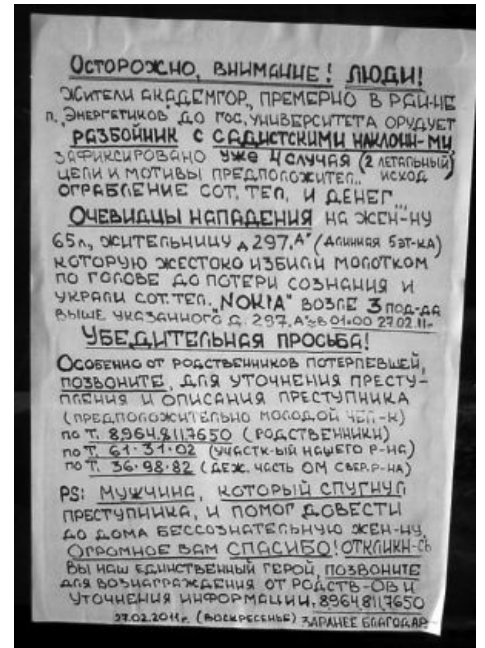 ОСТОРОЖНО, ВНИМАНИЕ! ЛЮДИ!
ЖИТЕЛИ АКАДЕМГОР., ПРЕМЕРНО В РАЙ-НЕ
П. ЭНЕРГЕТИКОВ ДО ГОС. УНИВЕРСИТЕТА ОРУДУЕТ
РАЗБОЙНИК С САДИСТСКИМИ НАКЛОНН-МИ
ЗАФИКСИРОВАНО УЖЕ 4 СЛУЧАЯ (2 ЛЕТАЛЬНЫЙ)
ЦЕЛИ И МОТИВЫ ПРЕДПОЛОЖИТЕЛ.. ИСХОД
ОГРАБЛЕНИЕ СОТ. ТЕЛ. И ДЕНЕГ...
ОЧЕВИДЦЫ НАПАДЕНИЯ НА ЖЕН-НУ
65 Л., ЖИТЕЛЬНИЦУ Д 297 „А" (ДЛИННАЯ 5ЭТ-КА)
КОТОРУЮ ЖЕСТОКО ИЗБИЛИ МОЛОТКОМ
ПО ГОЛОВЕ ДО ПОТЕРИ СОЗНАНИЯ И
УКРАЛИ СОТ. ТЕЛ. „NOKIA" ВОЗЛЕ 3 ПОД-ДА
ВЫШЕ УКАЗАННОГО Д. 297 „А" В 01:00 27.02.11г.
УБЕДИТЕЛЬНАЯ ПРОСЬБА!
ОСОБЕННО ОТ РОДСТВЕННИКОВ ПОТЕРПЕВШЕЙ,
ПОЗВОНИТЕ, ДЛЯ УТОЧНЕНИЯ ПРЕСТУ-
ПЛЕНИЯ И ОПИСАНИЯ ПРЕСТУПНИКА
(ПРЕДПОЛОЖИТЕЛЬНО МОЛОДОЙ ЧЕЛ-К)
ПО Т. 89648117650 (РОДСТВЕННИКИ)
ПО Т. 61-31-02 (УЧАСТК-ЫЙ НАШЕГО Р-НА)
ПО Т. 36-98-82 (ДЕЖ. ЧАСТЬ ОМ СВЕР. Р-НА)
PS: МУЖЧИНА, КОТОРЫЙ СПУГНУЛ
ПРЕСТУПНИКА, И ПОМОГ ДОВЕСТИ
ДО ДОМА БЕССОЗНАТЕЛЬНУЮ ЖЕН-НУ,
ОГРОМНОЕ ВАМ СПАСИБО! ОТКЛИКН-СЬ
ВЫ НАШ ЕДИНСТВЕННЫЙ ГЕРОЙ, ПОЗВОНИТЕ
ДЛЯ ВОЗНАГРАЖДЕНИЯ ОТ РОДСТВ-ОВ И
УТОЧНЕНИЯ ИНФОРМАЦИИ: 89648117650
27.02.2011г. (ВОСКРЕСЕНЬЕ) ЗАРАНЕЕ БЛАГОДАР-